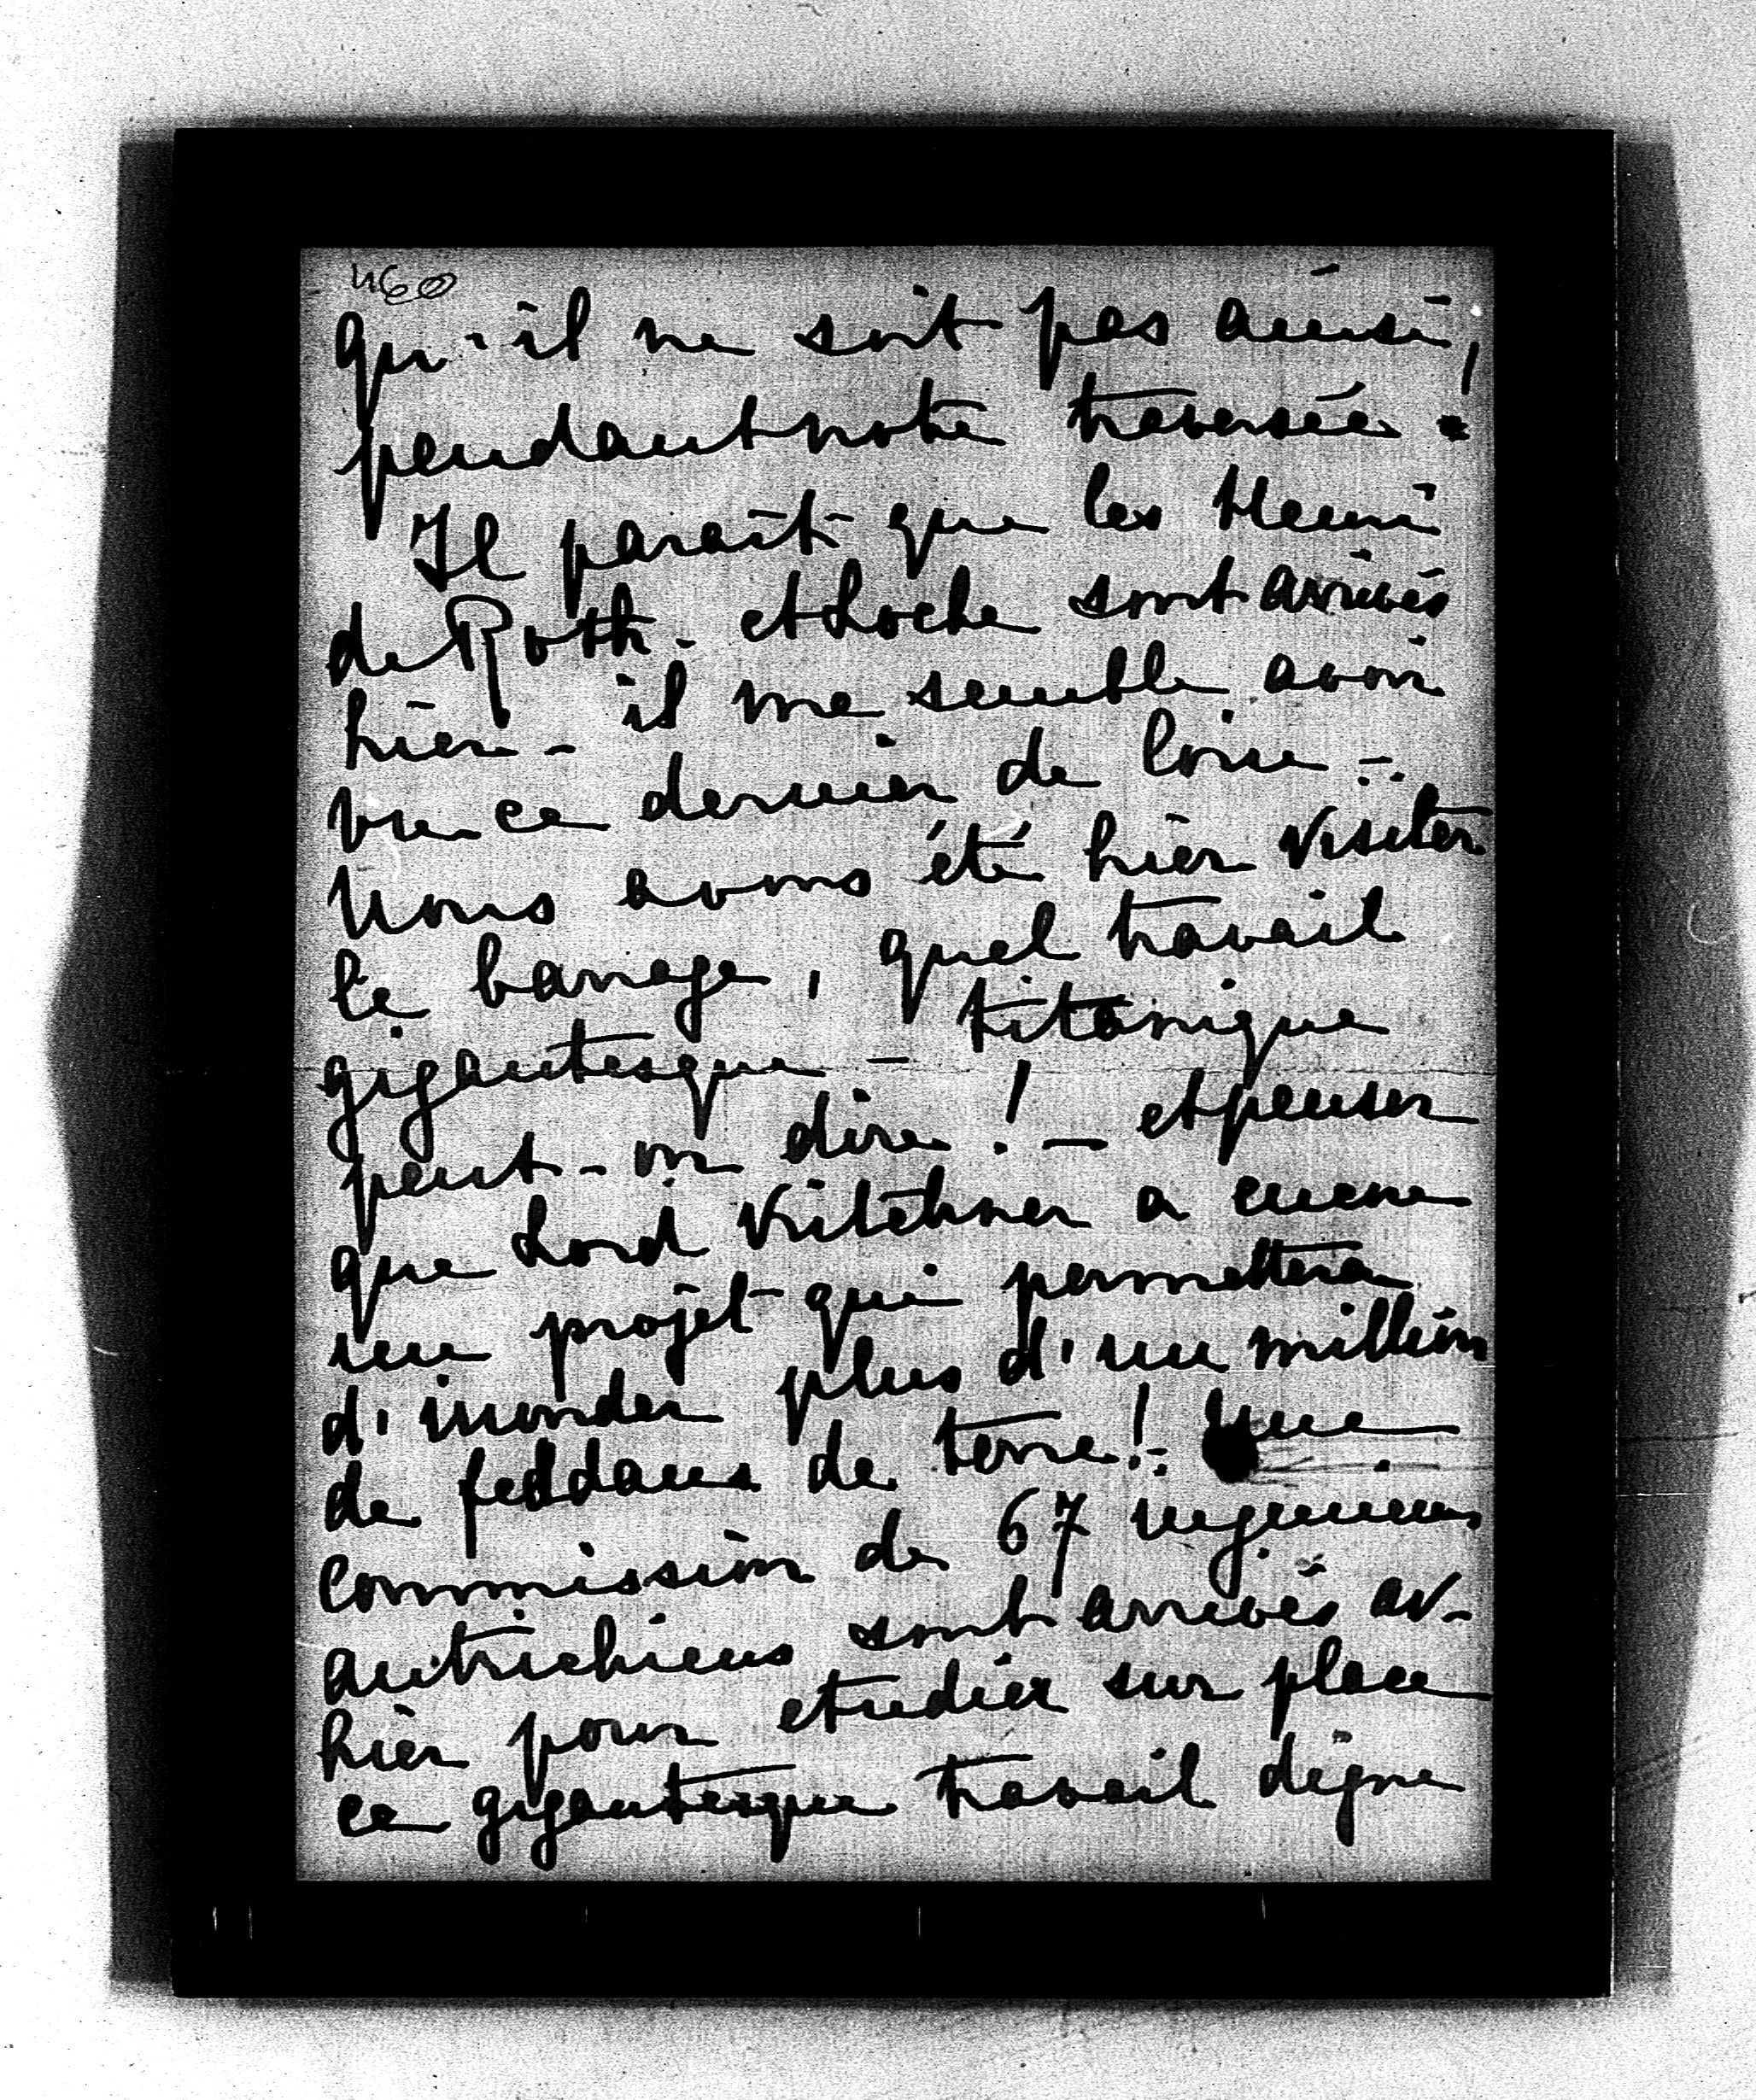 460
qu'il ne soit pas ainsi,
pendant notre traversée.
Il parait que les Henri
de Roth. et Loche sont arrivés
hier - il me semble avoir
vu ce dernier de loin -.
Nous avons été hier visiter
le barrage, quel travail
gigantesque - titanique
peut-on dire ! - et penser
que Lord Kitchner a encore
un projet qui permettera
d'inonder plus d'un million
de feddans de terre !. Une
commission de 67 ingenieurs
autrichiens sont arrivés av-
hier pour etudier sur place
ce gigantesque travail digne